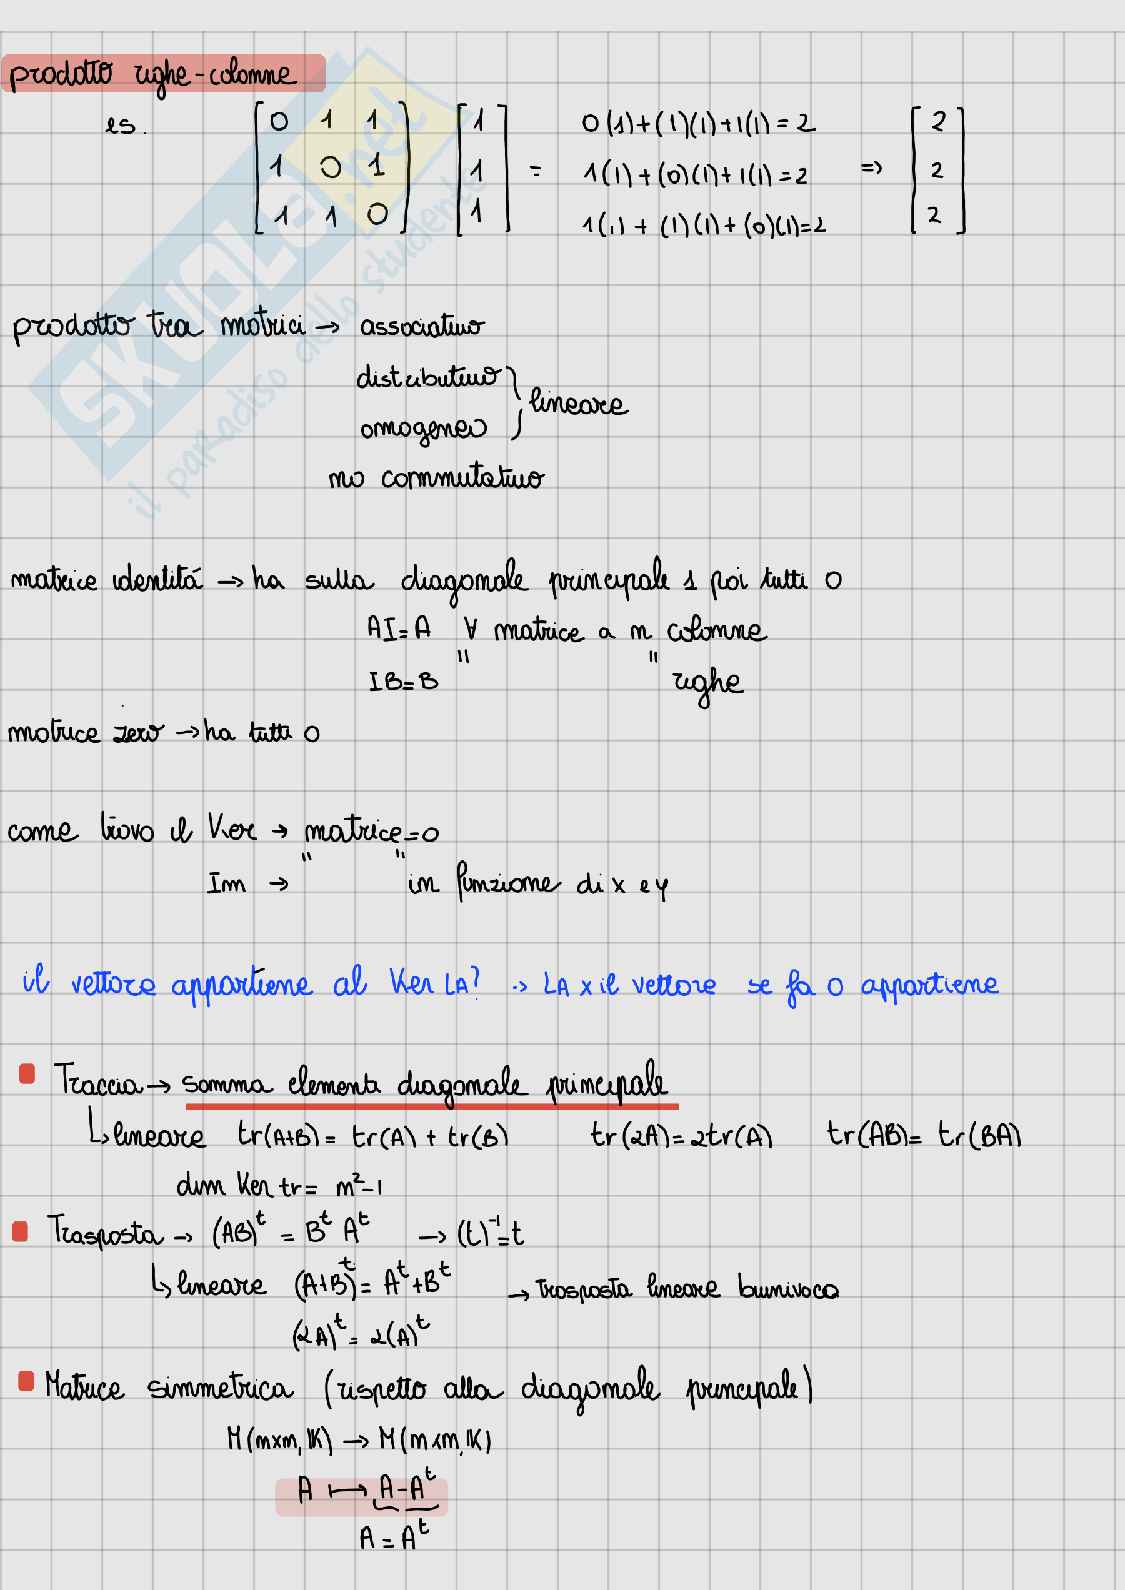 prodotto righe-colonne
es. [0 1 1 / 1 0 1 / 1 1 0] [1 / 1 / 1] = 0(1)+(1)(1)+1(1)=2 / 1(1)+(0)(1)+1(1)=2 / 1(1)+(1)(1)+(0)(1)=2 => [2 / 2 / 2]
prodotto tra matrici → associativo
distributivo
omogeneo } lineare
no commutativo
matrice identitá → ha sulla diagonale principale 1 poi tutti 0
AI=A ∀ matrice a n colonne
IB=B " " righe
matrice zero → ha tutti 0
come trovo il Ker → matrice=0
Im → " " in funzione di x e y
il vettore appartiene al Ker LA? → LA x il vettore se fa 0 appartiene
Traccia → somma elementi diagonale principale
↳ lineare tr(A+B)= tr(A) + tr(B) tr(2A)=2tr(A) tr(AB)= tr(BA)
dim Ker tr= n²-1
Trasposta → (AB)ᵗ = Bᵗ Aᵗ → (t)⁻¹=t
↳ lineare (A+B)ᵗ= Aᵗ+Bᵗ → trasposta lineare biunivoca
(2A)ᵗ= 2(A)ᵗ
Matrice simmetrica (rispetto alla diagonale principale)
M(nxn, K) → M(nxn, K)
A ↦ A-Aᵗ
A=Aᵗ
SKUOLA.net
il paradiso dello studente